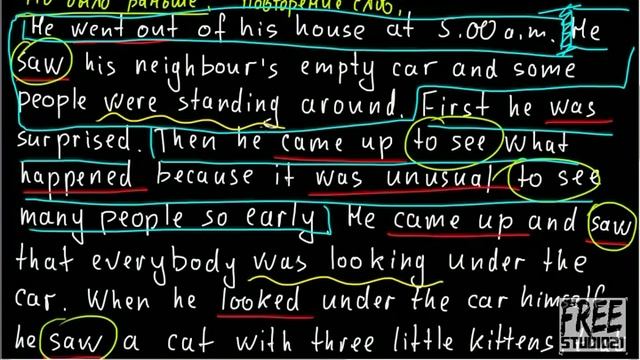 Но было раньше, повторение слов.
He went out of his house at 5.00 a.m. He
saw his neighbour's empty car and some
people were standing around. First he was
surprised. Then he came up to see what
happened because it was unusual to see
many people so early. He came up and saw
that everybody was looking under the
car. When he looked under the car himself
he saw a cat with three little kittens
FREE
STUDIO21